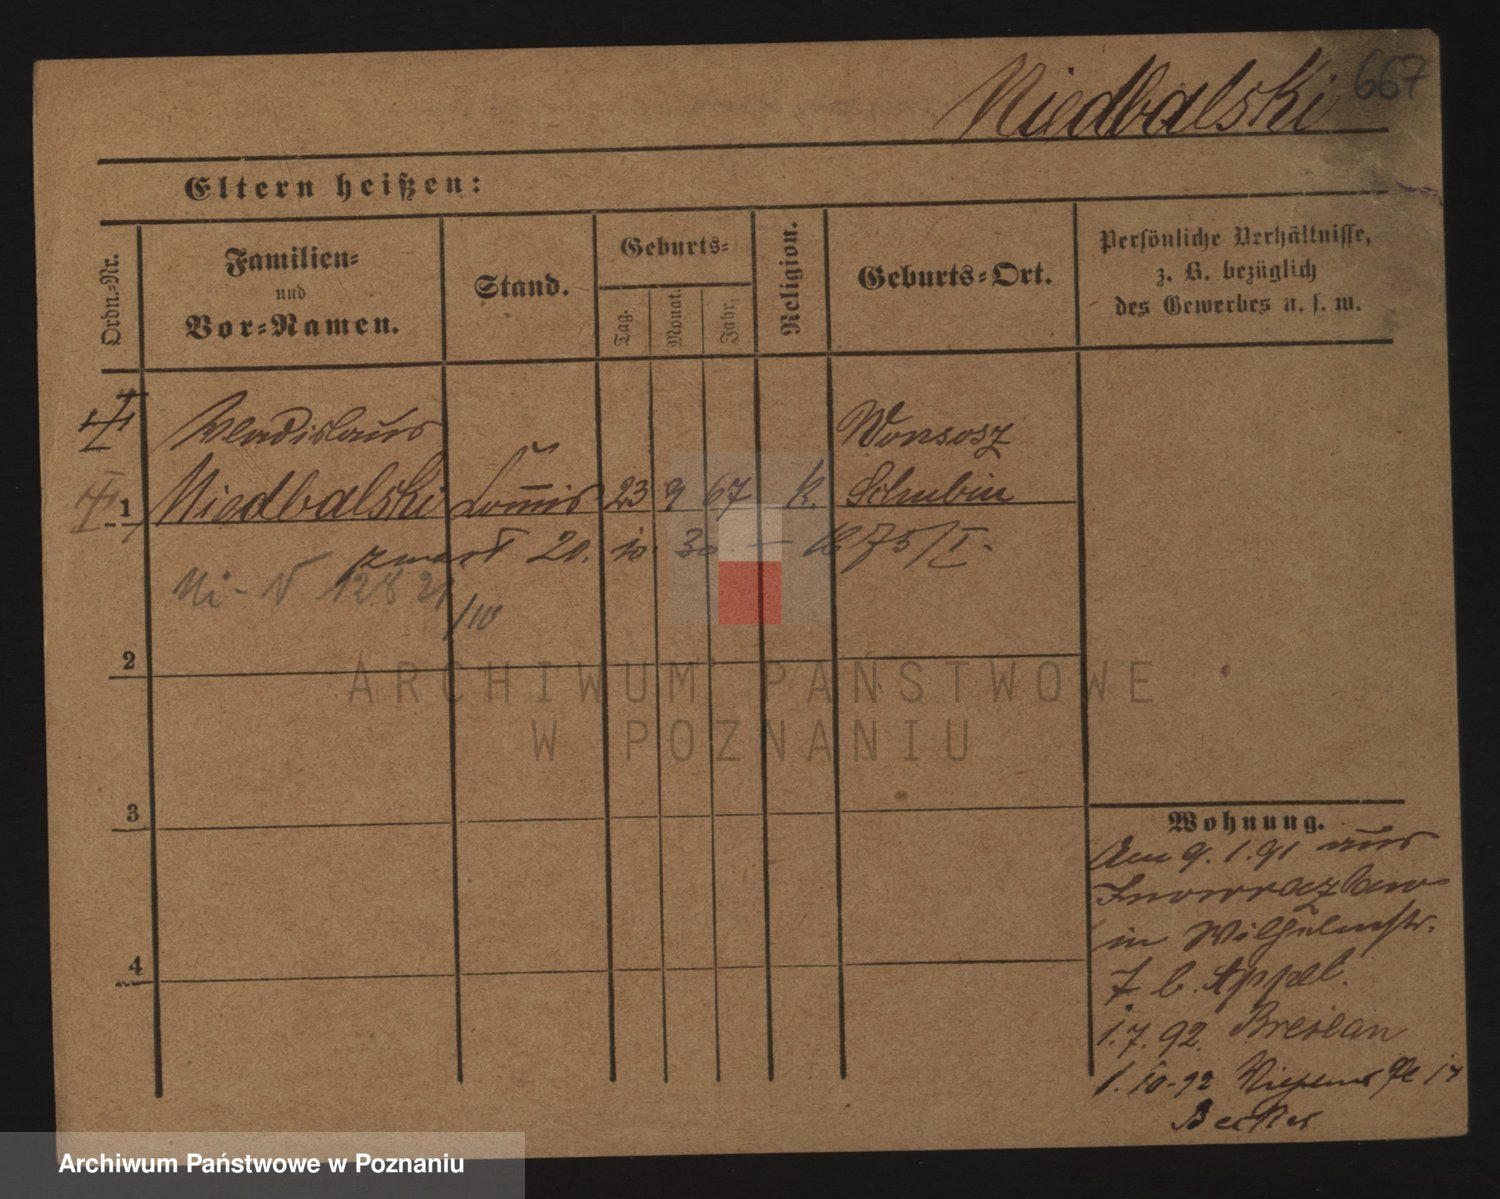 Niedbalski 667
Eltern heißen:
Ordn.-Nr.
Familien-
und
Vor-Namen.
Stand.
Geburts-
Tag.
Monat.
Jahr.
Religion.
Geburts-Ort.
Persönliche Verhältnisse,
z. B. bezüglich
des Gewerbes u. s. w.
Wladislaus
Niedbalski
Commis
23
9
67
k.
Wonsosz
Schubin
1
20. 10. 30. — 75/I.
Ni - V 128 21/10
2
3
4
Wohnung.
Am 9. 1. 91 aus
Inowrazlaw
in Wilhelmstr.
7 b. Appel.
1. 7. 92. Breslau
1. 10-92
Becker
ARCHIWUM PAŃSTWOWE
W POZNANIU
Archiwum Państwowe w Poznaniu